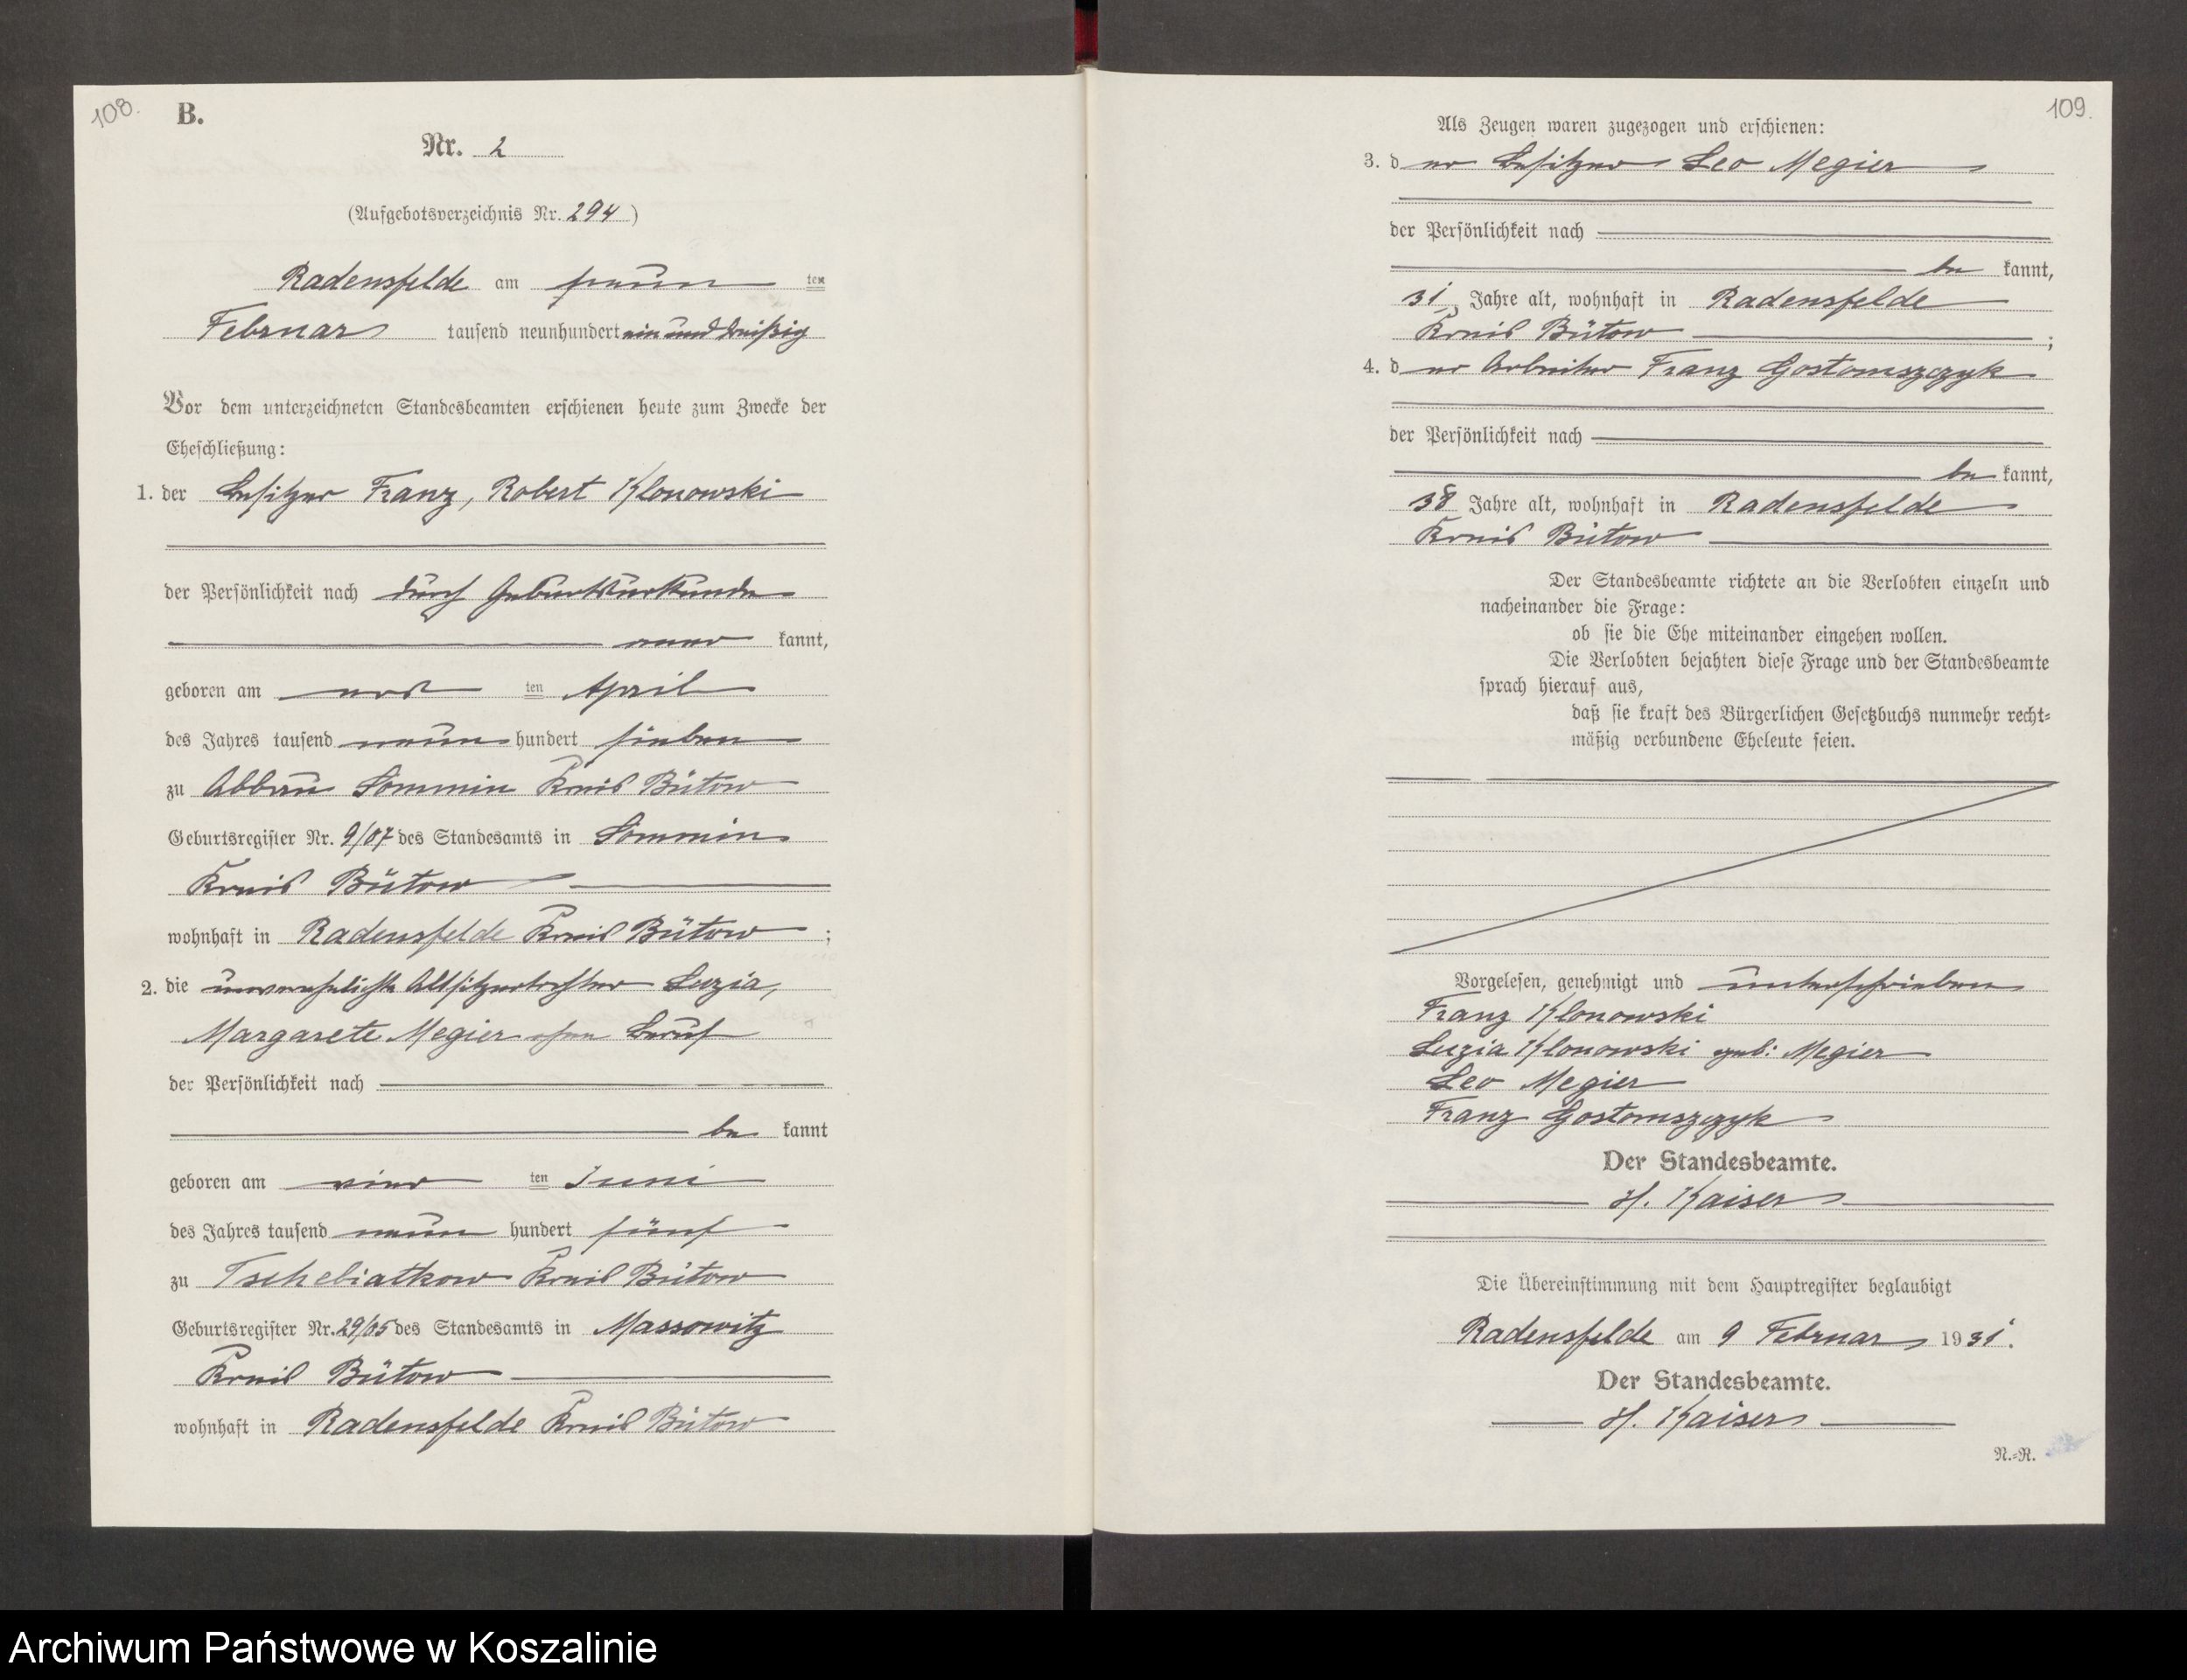 108.
B.
Nr. 2
(Aufgebotsverzeichnis Nr. 294)
Radensfelde am neun ten
Februar tausend neunhundert ein und dreißig
Vor dem unterzeichneten Standesbeamten erschienen heute zum Zwecke der
Eheschließung:
1. der Besitzer Franz, Robert Klonowski
der Persönlichkeit nach durch Geburtsurkunde
aner kannt,
geboren am ersten ten April
des Jahres tausend neun hundert sieben
zu Abbau Sommin Kreis Bütow
Geburtsregister Nr. 9/07 des Standesamts in Sommin
Kreis Bütow
wohnhaft in Radensfelde Kreis Bütow;
2. die unverehelichte Altsitzertochter Luzia,
Margarete Megier ohne Beruf
der Persönlichkeit nach
be kannt
geboren am vier ten Juni
des Jahres tausend neun hundert fünf
zu Tschebiatkow Kreis Bütow
Geburtsregister Nr. 29/05 des Standesamts in Massowitz
Kreis Bütow
wohnhaft in Radensfelde Kreis Bütow
109.
Als Zeugen waren zugezogen und erschienen:
3. d er Besitzer Leo Megier
der Persönlichkeit nach
be kannt,
31 Jahre alt, wohnhaft in Radensfelde
Kreis Bütow;
4. d er Arbeiter Franz Gostomszczyk
der Persönlichkeit nach
be kannt,
38 Jahre alt, wohnhaft in Radensfelde
Kreis Bütow
Der Standesbeamte richtete an die Verlobten einzeln und
nacheinander die Frage:
ob sie die Ehe miteinander eingehen wollen.
Die Verlobten bejahten diese Frage und der Standesbeamte
sprach hierauf aus,
daß sie kraft des Bürgerlichen Gesetzbuchs nunmehr recht-
mäßig verbundene Eheleute seien.
Vorgelesen, genehmigt und unterschrieben
Franz Klonowski
Luzia Klonowski geb: Megier
Leo Megier
Franz Gostomszczyk
Der Standesbeamte.
H. Kaiser
Die Übereinstimmung mit dem Hauptregister beglaubigt
Radensfelde am 9 Februar 1931.
Der Standesbeamte.
H. Kaiser
N.-R.
Archiwum Państwowe w Koszalinie